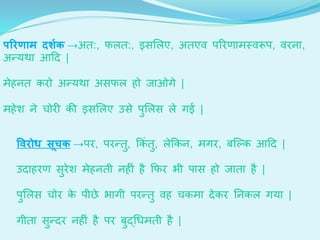 परिणाम दर्शक →अत:, फलत:, इसलिए, अतएव परिणामस्वरूप, वरना,
अन्यथा आदि |
मेहनत करो अन्यथा असफल हो जाओगे |
महेश ने चोरी की इसलिए उसे पुलिस ले गई |
विरोध सूचक →पर, परन्तु, किंतु, लेकिन, मगर, बल्कि आदि |
उदाहरण सुरेश मेहनती नहीं है फिर भी पास हो जाता है |
पुलिस चोर के पीछे भागी परन्तु वह चकमा देकर निकल गया |
गीता सुन्दर नहीं है पर बुद्धिमती है |